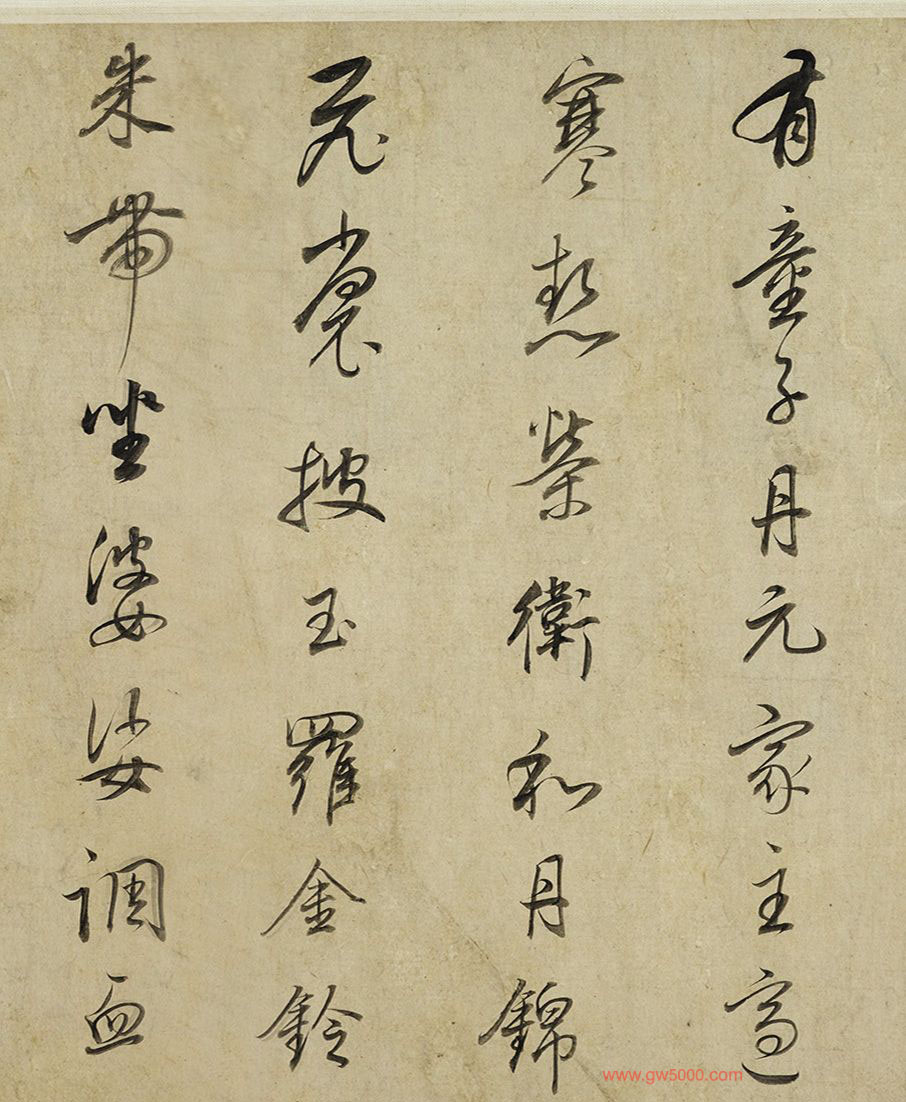 有童子丹元家主適
寒熱榮衛和丹錦
飛裳披玉羅金鈴
朱帶坐婆娑調血
www.gw5000.com